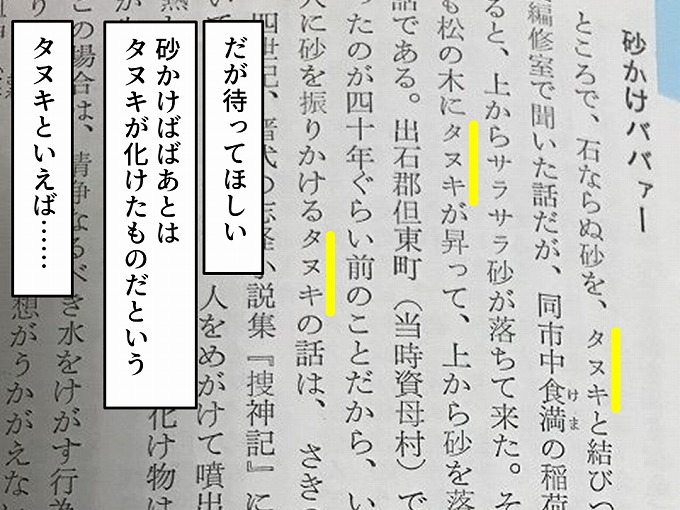 砂かけババァー
ところで、石ならぬ砂を、タヌキと結びつ
編修室で聞いた話だが、同市中食満の稲荷
けま
ると、上からサラサラ砂が落ちて来た。そ
も松の木にタヌキが昇って、上から砂を落
話である。出石郡但東町（当時資母村）で
ったのが四十年ぐらい前のことだから、い
人に砂を振りかけるタヌキの話は、さき
四世紀、晋代の志怪小説集『捜神記』に
だが待ってほしい
人をめがけて噴出
化け物は
砂かけばばあとは
タヌキが化けたものだという
この場合は、清浄なるべき水をけがす行為
タヌキといえば……
想がうかがえない